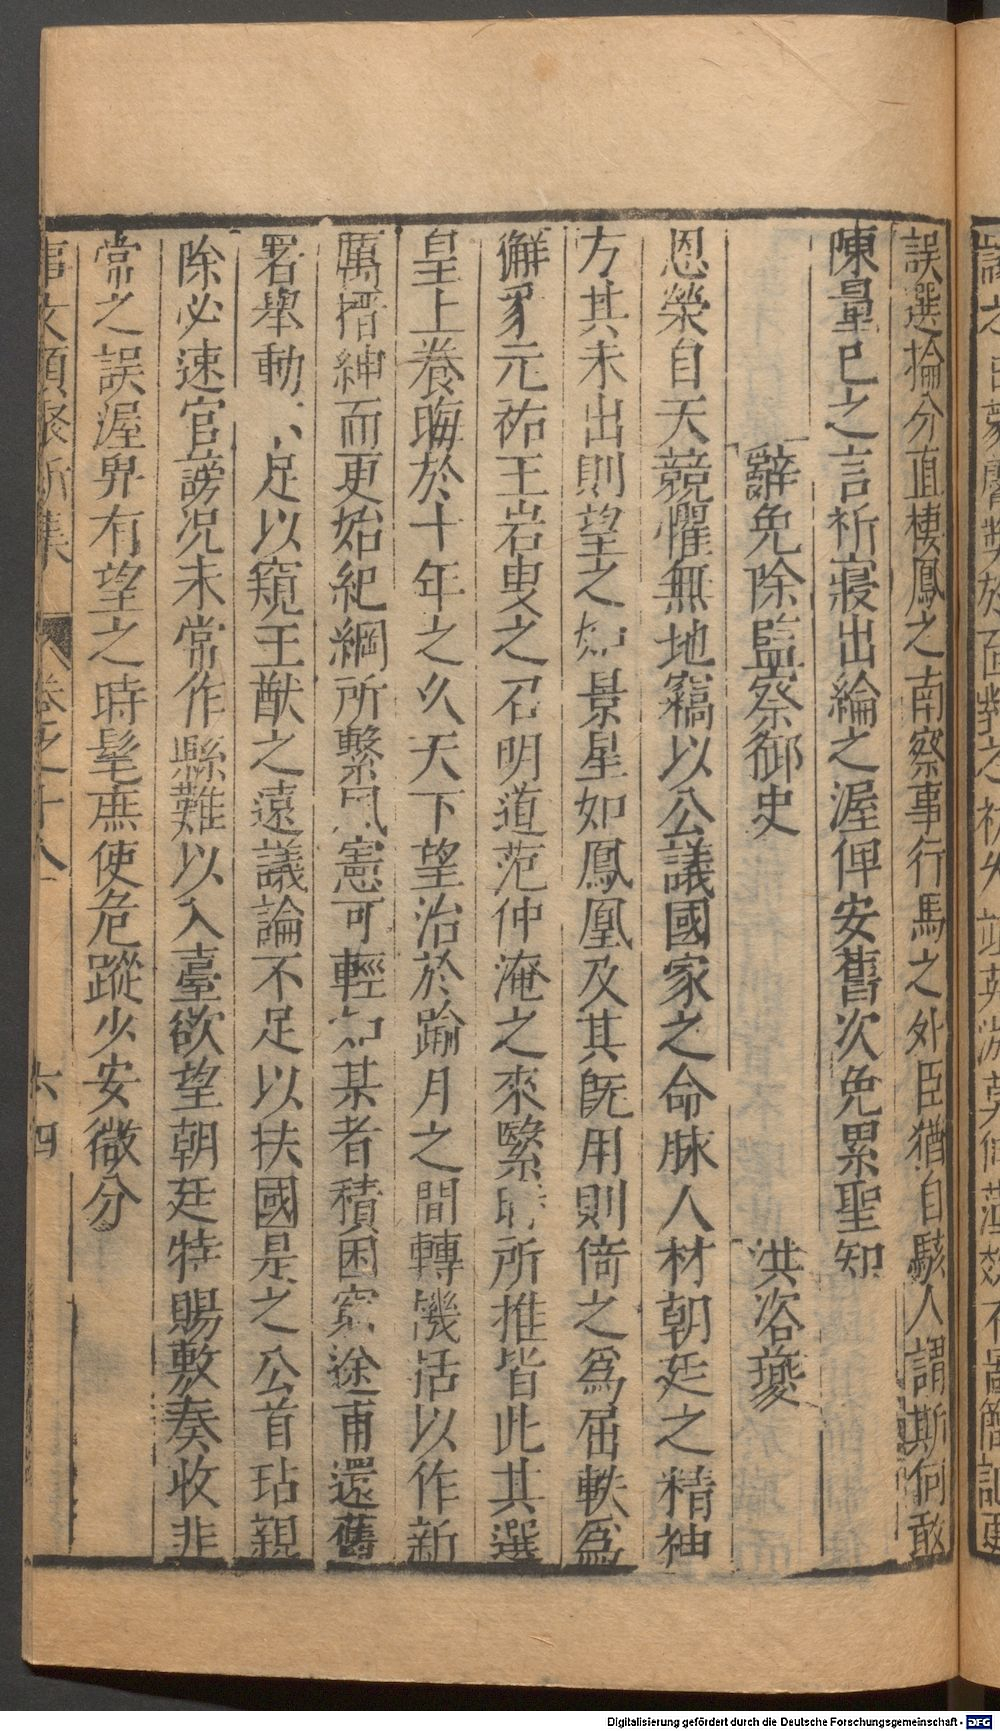 誤選掄分直棲鳳之南察事行馬之外臣猶自駭人謂斯何敢
陳量已之言祈寢出綸之渥俾安舊次免累聖知
辭免除監察御史 洪咨夔
恩榮自天兢懼無地竊以公議國家之命脉人材朝廷之精神
方其未出則望之如景星如鳳凰及其旣用則倚之爲屈軼爲
獬豸元祐王岩叟之召明道范仲淹之來繄時所推皆此其選
皇上養晦於十年之久天下望治於踰月之間轉機括以作新
厲搢紳而更始紀綱所繫風憲可輕如某者積困窮途甫還舊
署舉動不足以窺王猷之遠議論不足以扶國是之公首玷親
除必速官謗况未嘗作縣難以入臺欲望朝廷特賜敷奏收非
常之誤渥畀有望之時髦庶使危蹤少安微分
事文類聚新集 卷之十八 六四
Digitalisierung gefördert durch die Deutsche Forschungsgemeinschaft - DFG